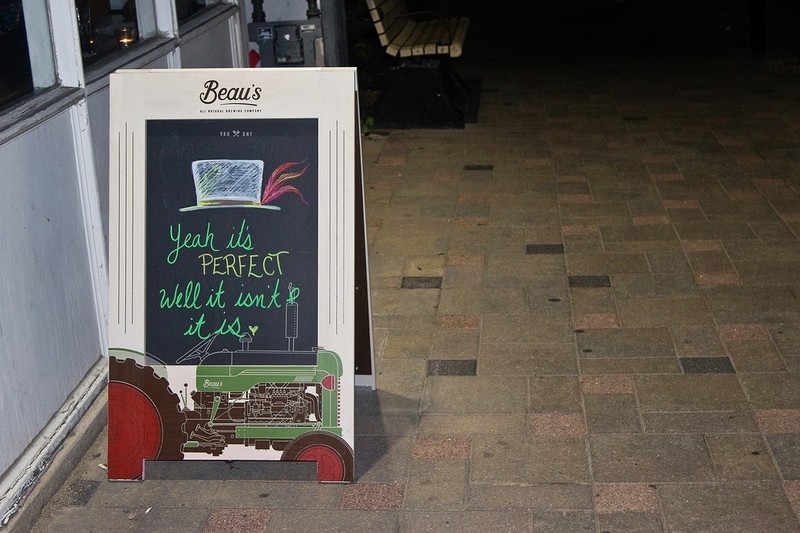 Beau's
ALL NATURAL BREWING COMPANY
VKH ONT
Yeah it's
PERFECT
Well it isn't
it is
Beau's